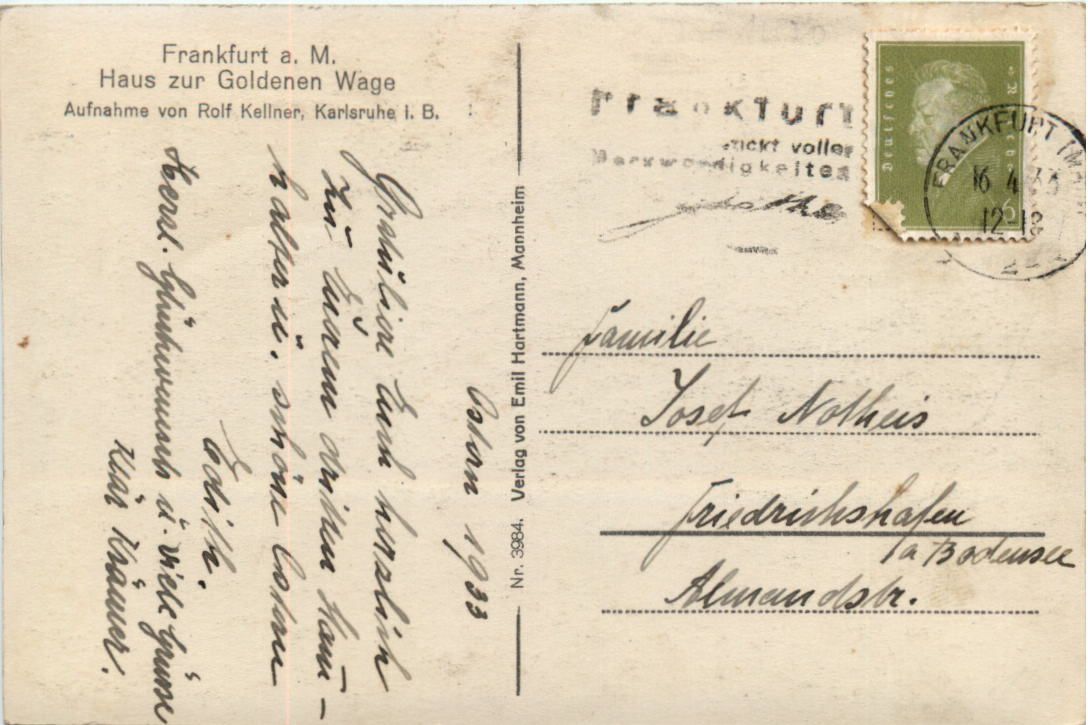 Frankfurt a. M.
Haus zur Goldenen Wage
Aufnahme von Rolf Kellner, Karlsruhe i. B.
Ostern 1933
Gratuliere Euch herzlich
zu Eurem dritten Stam-
halter u. schöne Ostern
Edith.
Herzl. Glückwunsch u. viele Grüsse
Klär Krämer.
Nr. 3984. Verlag von Emil Hartmann, Mannheim
Frankfurt
steckt voller
Merkwürdigkeiten
Goethe
Deutsches Reich
6
FRANKFURT (MAIN)
16 4 33
12-13
Familie
Josef Notheis
Friedrichshafen
a Bodensee
Almandstr.